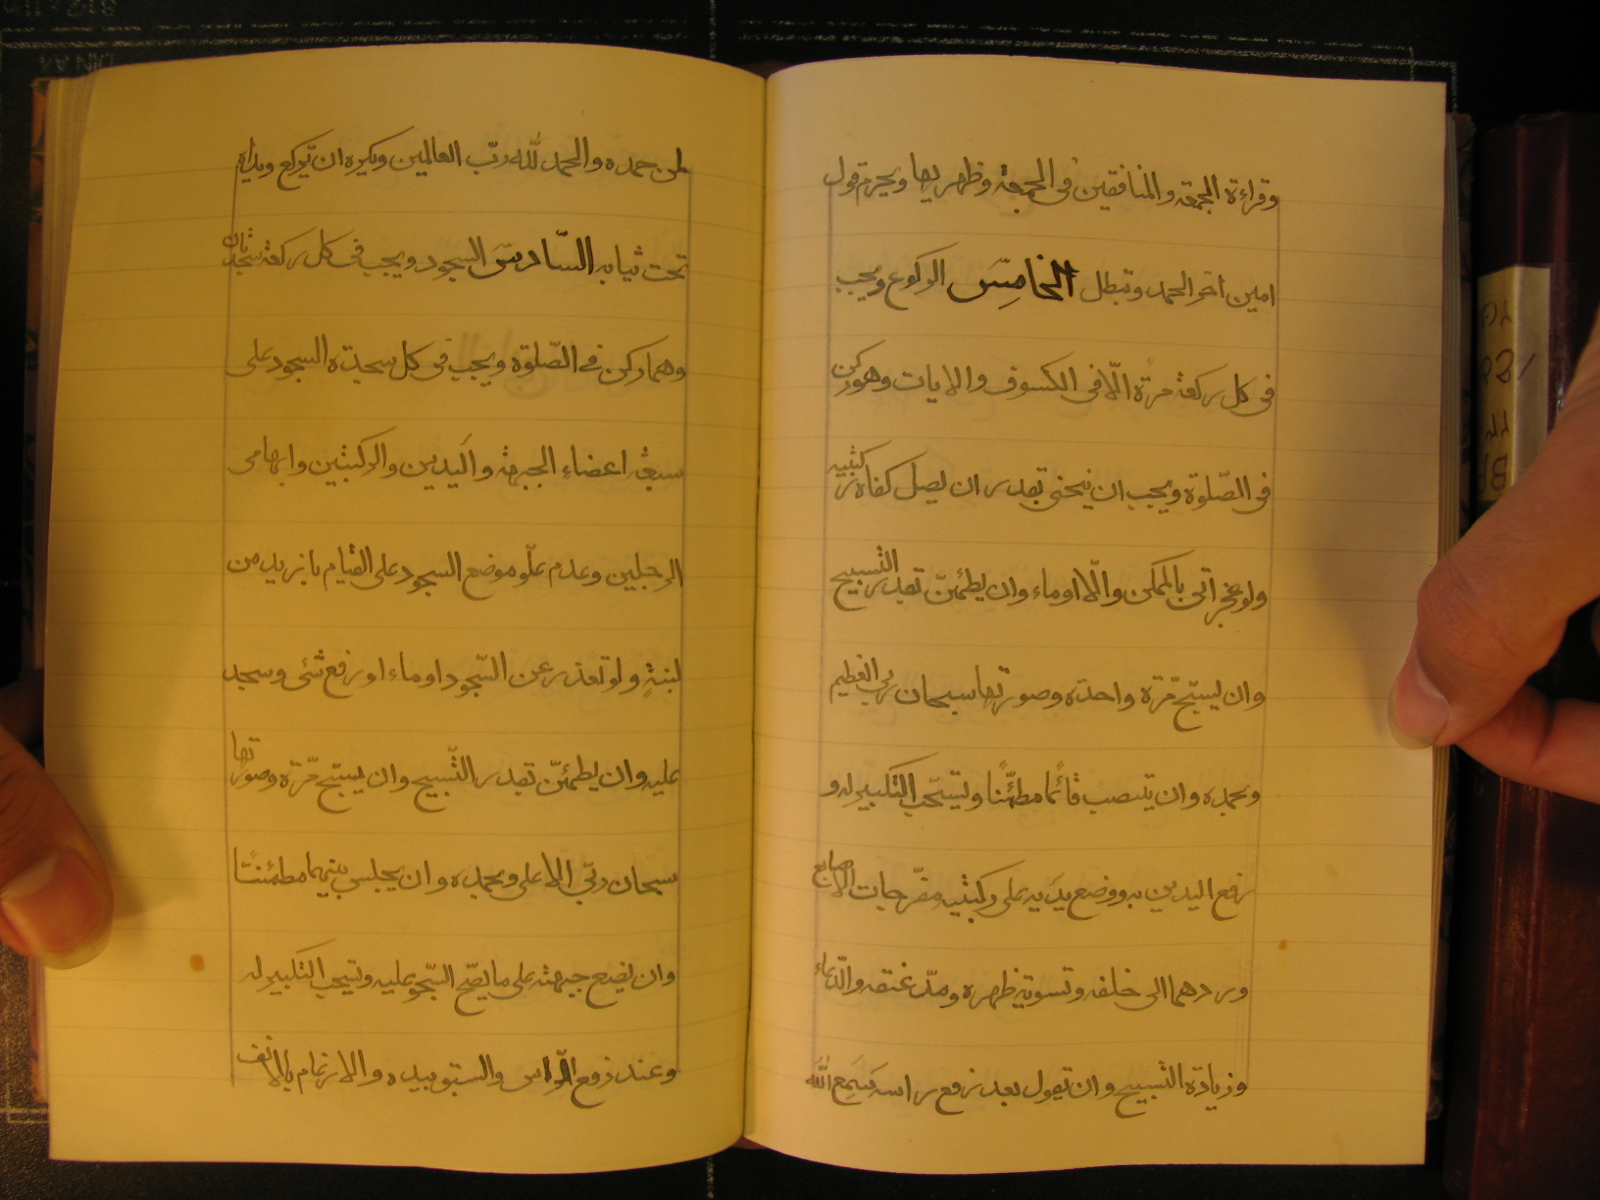 وقراءة الجمعة والمنافقين فى الجمعة وظهريها ويحرم قول
امين اخر الحمد وتبطل الخامِسَ الركوع ويجب
فى كل ركعة مرّة الّا فى الكسوف والايات وهو ركن
فى الصّلوة ويجب ان ينحنى بقدر ان يصل كفاه ركبتيه
ولو عجز اتى بالممكن والّا اوماء وان يطمئنّ بقدر التسبيح
وان يسبّح مرّة واحدة وصورتها سبحان ربى العظيم
وبحمده وان ينتصب قائمًا مطمئنًا ويستحّب التكبير له و
رفع اليدين به ووضع يديه على ركبتيه مفرّجات الاصابع
وردهما الى خلفه وتسوية ظهره ومدّ عنقه والدّعاء
وزيادة التسبيح وان يقول بعد رفع راسه سَمِعَ اللّٰه
لمن حمده والحمد للّٰه ربّ العالمين ويكره ان يركع ويداه
تحت ثيابه السّادسَ السجود ويجب فى كل ركعة سجدتان
وهما ركن فى الصّلوة ويجب فى كل سجدة السجود على
سبعة اعضاء الجبهة واليدين والركبتين وابهامى
الرجلين وعدم علّو موضع السجود على القيام بازيد من
لبنةٍ ولو تعذر عن السّجود اوماء او رفع شئى وسجد
عليه وان يطمئنّ بقدر التّسبيح وان يسبّح مّرة وصورتها
سبحان ربّى الاعلى وبحمده وان يجلس بينهما مطمئنًا
وان يضع جبهته على ما يصّح السّجو عليه ويستحب التكبير له
وعند رفع الرّاس والسبق بيده والارغام بالانف